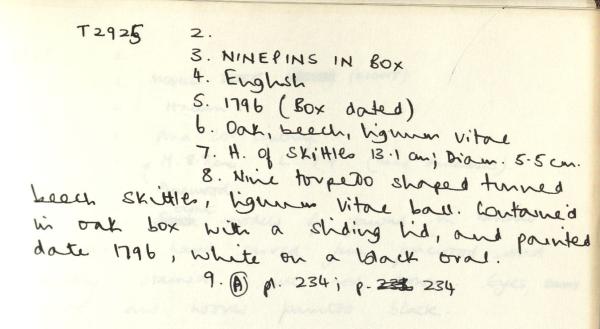 T2925 2.
3. NINEPINS IN BOX
4. English
5. 1796 (Box dated)
6. Oak, beech, lignum vitae
7. H. of Skittles 13.1 cm; Diam. 5.5 cm.
8. Nine torpedo shaped turned
beech skittles, lignum vitae ball. Contained
in oak box with a sliding lid, and painted
date 1796, white on a black oval.
9. (A) pl. 234; p. 234